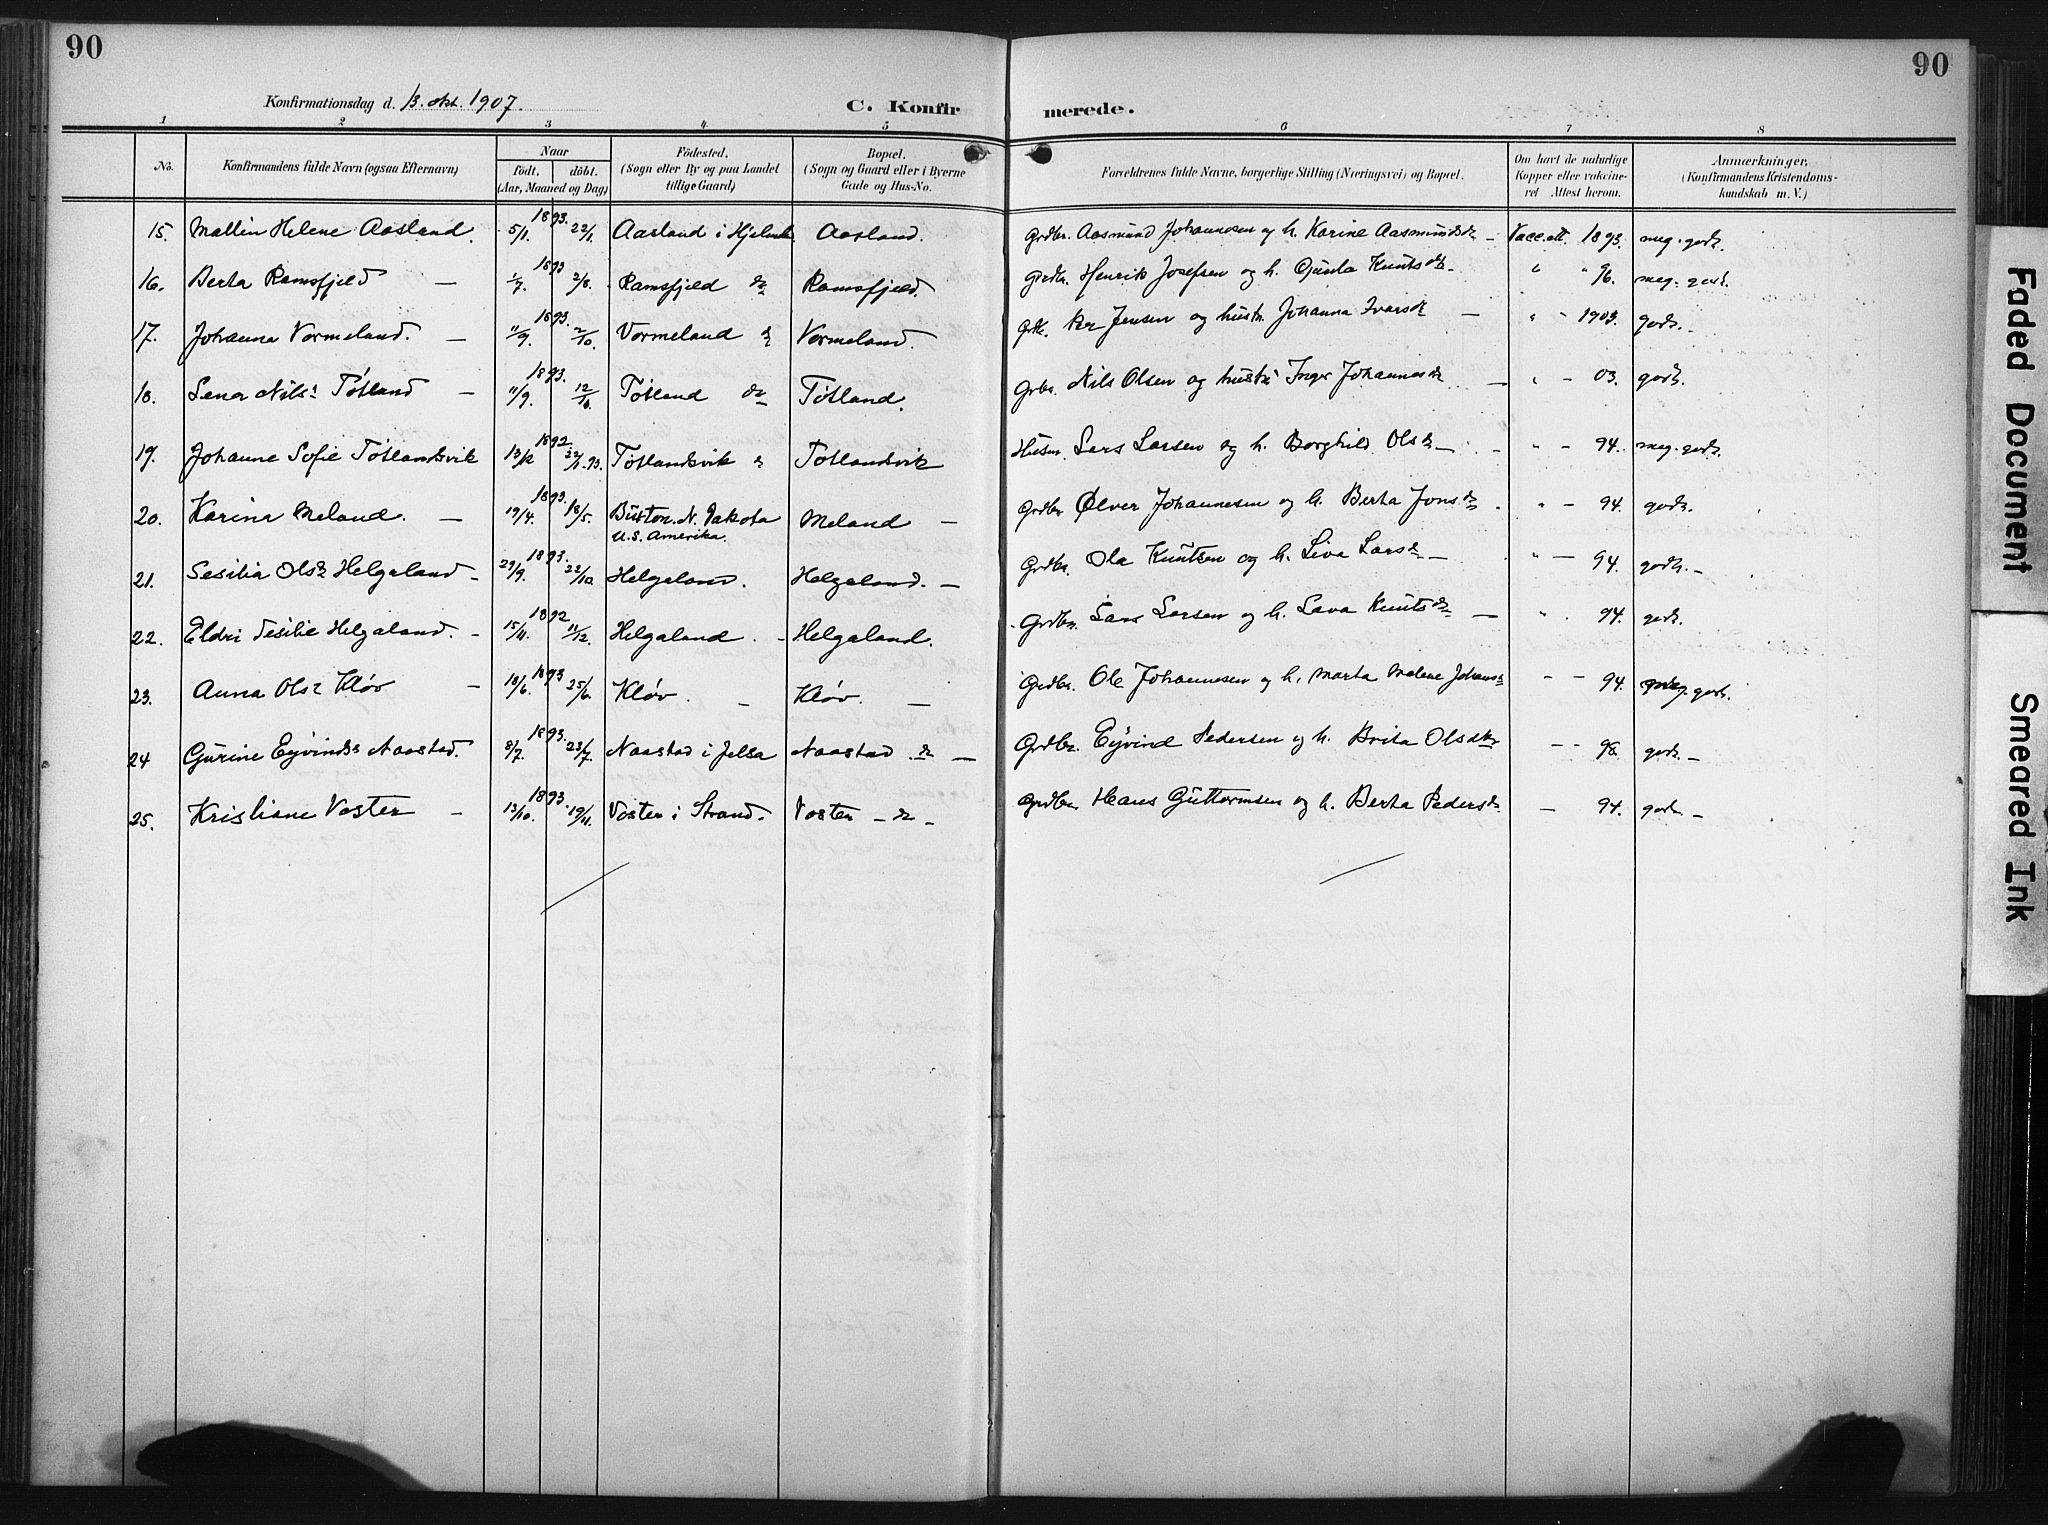 90
90
Konfirmationsdag d. 13. okt. 1907.
C. Konfirmerede.
1 2 3 4 5 6 7 8
No.
Konfirmandens fulde Navn (ogsaa Efternavn)
Naar
født. døbt.
(Aar, Maaned og Dag)
Fødested.
(Sogn eller By og paa Landet
tillige Gaard)
Bopæl.
(Sogn og Gaard eller i Byerne
Gade og Hus-No.
Forældrenes fulde Navne, borgerlige Stilling (Næringsvei) og Bopæl.
Om havt de naturlige
Kopper eller vakcine-
ret Attest herom.
Anmærkninger.
(Konfirmandens Kristendoms-
kundskab m. V.)
15. Mallin Helene Aasland. 1893. 5/1. 22/1. Aasland i Hjelmel. Aasland. Grdbr. Aasmund Johannesen og h. Karine Aasmundsdr – Vacc. att. 1893. meg. godt.
16. Berta Ramsfjeld – 1893 1/7. 2/8. Ramsfjeld do Ramsfjeld. Grdbr. Henrik Josefsen og h. Gunla Knutsdr. " " 96. meg. godt.
17. Johanna Vormeland. – 1893. 11/9. 2/10. Vormeland do Vormeland. Grbr. Per Jensen og hustr. Johanna Ivarsdr – " – 1903. godt. –
18. Lena Nilsd Tøtland – 1893. 11/9. 12/10. Tøtland do Tøtland. Grbr. Nils Olsen og hustr. Inger Johannesdr – " – 03. godt.
19. Johanne Sofie Tøtlandsvik 1892 13/12 22/1. 93. Tøtlandsvik do Tøtlandsvik Husm. Lars Larsen og h. Borghild Olsdr – " – 94. meg. godt.
20. Karina Meland. – 1893. 19/4. 18/5. Buxton. N. Dakota Meland – Grdbr Ølver Johannesen og h. Berta Jonsdr . " – 94. godt.
U.S. Amerika.
21. Sesilia Olsdr Helgaland – 1893. 29/9. 22/10 Helgaland. Helgaland. – Grdbr. Ola Knutsen og h. Liva Larsdr – " – 94. godt. –
22. Eldri Sesilie Helgaland. – 1892 15/11. 11/12. Helgaland – Helgaland. Grdbr. Lars Larsen og h. Lava Knutsdr – " . 94. godt.
23. Anna Olsd Kløv – 1893 18/6. 25/6. Kløv. – Kløv. – Grdbr. Ole Johannesen og h. Marta Malene Johansdr " – 94. meg. godt.
24 Gurine Eyvindsd Naastad. 1893. 8/7. 23/7. Naastad i Jelsa Naastad do – Grdbr. Eyvind Pedersen og h. Brita Olsdtr – – 98. godt. –
25. Kristiane Voster – 1893. 13/10. 19/11. Voster i Strand. Voster – do – Grdbr Hans Guttormsen og h. Berta Pedersdr – 94. godt –
Faded Document
Smeared Ink